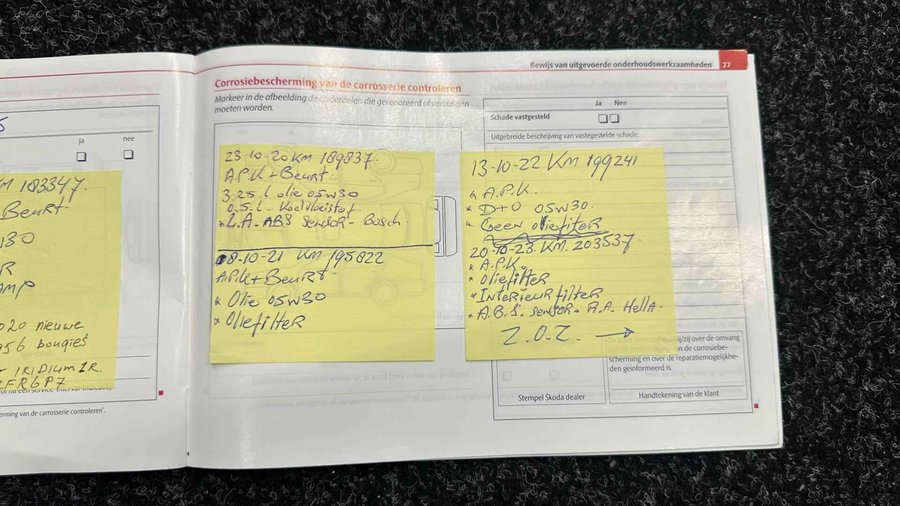 Bewijs van uitgevoerde onderhoudswerkzaamheden 27
Corrosiebescherming van de carrosserie controleren
Markeer in de afbeelding de onderdelen die gerepareerd of vervangen
moeten worden.
ja nee
KM 183347.
Beurt
W30
020 nieuwe
bougies
IRIDIUM IR.
ZFR6P7
erming van de carrosserie controleren'.
23-10-20 KM 189837
A.P.K + Beurt.
3,25.L olie 05W30
0,5.L - Koelvloeistof
* L.A - ABS Sensor - Bosch -
08-10-21 KM 195822
A.P.K + Beurt -
* Olie 05W30
* Oliefilter
Ja Nee
Schade vastgesteld
Uitgebreide beschrijving van vastgestelde schade:
13-10-22 KM 199241
* A.P.K.
* D+O 05W30.
* Geen oliefilter
20-10-23 KM. 203537
* A.P.K.
* Oliefilter
* Interieur filter
* A.B.S. Sensor - R.A. Hella -
Z.O.Z. →
hij/zij over de omvang
van de corrosiebe-
scherming en over de reparatiemogelijkhe-
den geïnformeerd is.
Stempel Škoda dealer
Handtekening van de klant